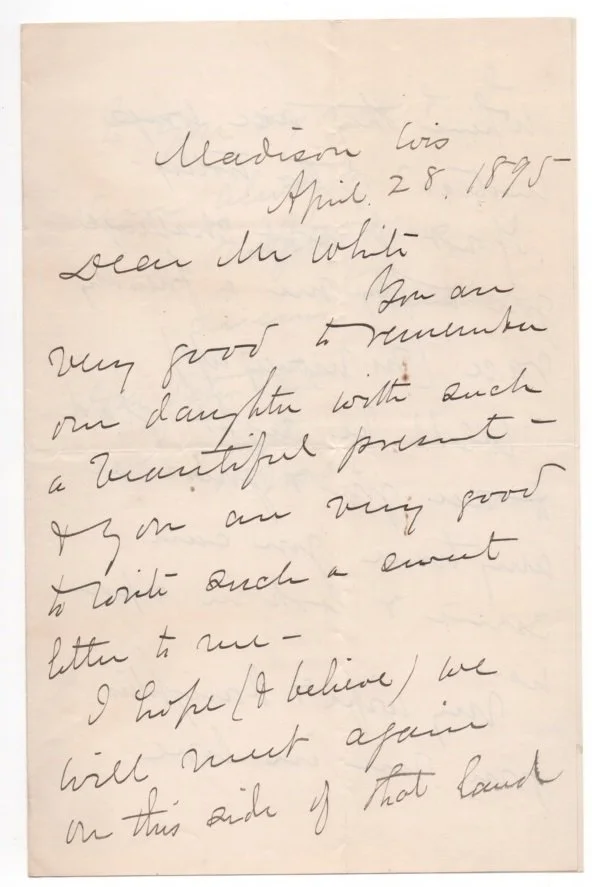 Madison Wis
April. 28. 1895
Dear Mr White
You are
very good to remember
our daughter with such
a beautiful present -
& you are very good
to write such a sweet
letter to me -
I hope (& believe) we
will meet again
on this side of that land